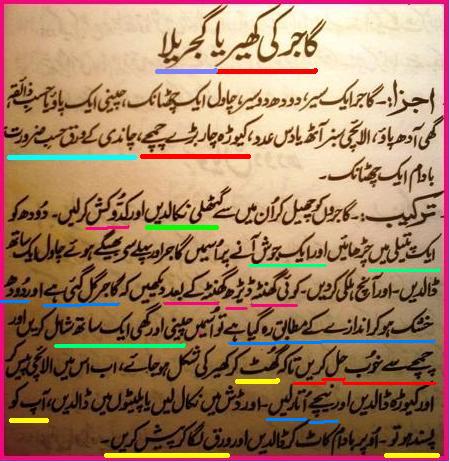 گاجر کی کھیر یا گجریلا
اجزا:- گاجر ایک سیر، دودھ دو سیر، چاول ایک چھٹانک، چینی ایک پاؤ یا حسب ذائقہ
گھی آدھ پاؤ، الائچی سبز آٹھ یا دس عدد، کیوڑہ چار بڑے چمچے، چاندی کے ورق حسب ضرورت
بادام ایک چھٹانک۔
ترکیب:- گاجروں کو چھیل کر اُن میں سے گٹھلی نکالدیں اور کدوکش کرلیں۔ دودھ کو
ایک پتیلی میں چڑھائیں اور ایک جوش آنے پر اسمیں گاجر اور پہلے سے بھیگے ہوئے چاول ایک ساتھ
ڈالدیں۔ اور آنچ ہلکی کردیں۔ کوئی گھنٹہ ڈیڑھ گھنٹے کے بعد دیکھیں کہ گاجر گل گئی ہے اور دودھ
خشک ہو کر اندازے کے مطابق رہ گیا ہے تو اُسمیں چینی اور گھی ایک ساتھ شامل کریں اور
چمچے سے خوب حل کریں تاکہ گھٹ کر کھیر کی شکل ہو جائے، اب اس میں الائچی پیس کر
اور کیوڑہ ڈالدیں اور نیچے اُتار لیں۔ اور ڈش میں نکال لیں یا پلیٹوں میں ڈالدیں، آپ کو
پسند ہو تو۔ اُوپر بادام کاٹ کر ڈالدیں اور ورق لگا کر پیش کریں۔